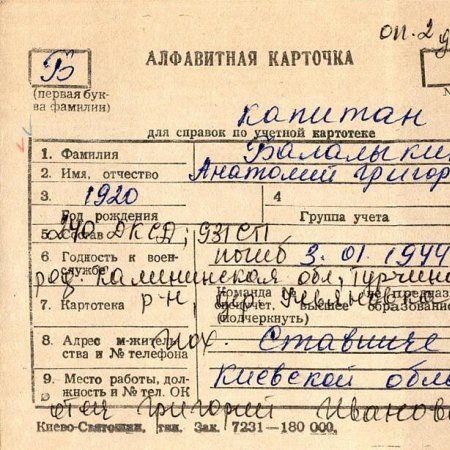 оп. 2
АЛФАВИТНАЯ КАРТОЧКА
Б
(первая бук-
ва фамилии)
капитан
для справок по учетной картотеке
1. Фамилия Балалыки
2. Имя, отчество Анатолий Григор
3. 1920 4
Год рождения Группа учета
5. Состав 240 ДКСД; 931 СП
6. Годность к воен- службе погиб 3.01.1944
род. Калининская обл., Турчин
7. Картотека р-н, др.
Команда № не предназ
высшее образование
(подчеркнуть)
8. Адрес м-житель- Пох. Ставище
ства и № телефона
9. Место работы, дол- Киевской обла
жность и № тел. ОК
отец Григорий Иванов
Киево-Святошин, тип. Зак. 7231—180 000.